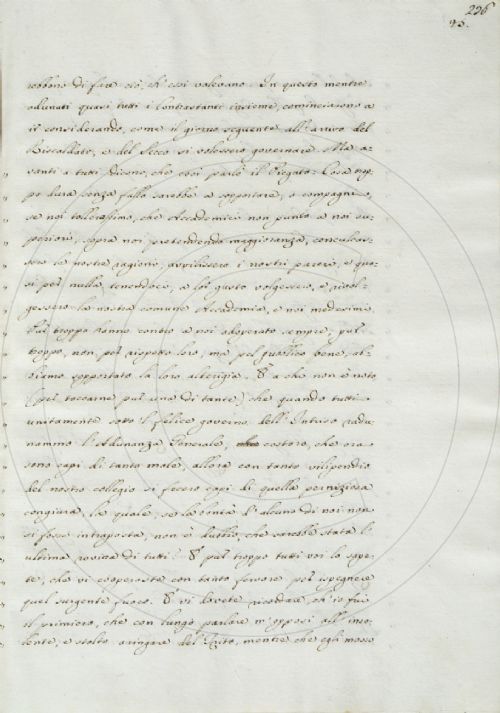 236
93.
rebbono di fare ciò, ch'essi volevano. In questo mentre
adunati quasi tutti i contrastanti insieme, cominciarono a
ir considerando, come il giorno seguente all'arrivo del
Riscaldato, e del Secco si volessero governare. Ma a-
vanti a tutti dicono, che così parlò il Piegato: Cosa trop-
po dura senza fallo sarebbe a sopportare, o compagni,
se noi tollerassimo, che Accademici non punto a noi su-
periori, sopra noi pretendendo maggioranza, conculcas-
sero le nostre ragioni, avvilissero i nostri pareri, e qua-
si per nulla tenendoci, a lor gusto volgessero, e rivol-
gessero la nostra comune Accademia, e noi medesimi.
Pur troppo hanno contro a noi adoperato sempre, pur
troppo, non per rispetto loro, ma pel pubblico bene, ab-
biamo sopportato la loro alterigia. E a che non è noto
(per toccarne pur una di tante) che quando tutti
unitamente sotto il felice governo dell'Intuso radu-
nammo l'Adunanza Generale, costoro, che ora
sono capi di tanto male, allora con tanto vilipendio
del nostro collegio si fecero capi di quella perniziosa
congiura, la quale, se la omia d'alcuno di noi non
si fosse intraposta, non è dubbio, che sarebbe stata l'
ultima rovina di tutti? E pur troppo tutti voi lo sape-
te, che vi cooperaste con tanto fervore per ispegnere
quel surgente fuoco. E vi dovete ricordare, ch'io fui
il primiero, che con lungo parlare m'opposi all'inso-
lente, e stolto aringare del, mentre che egli mosso